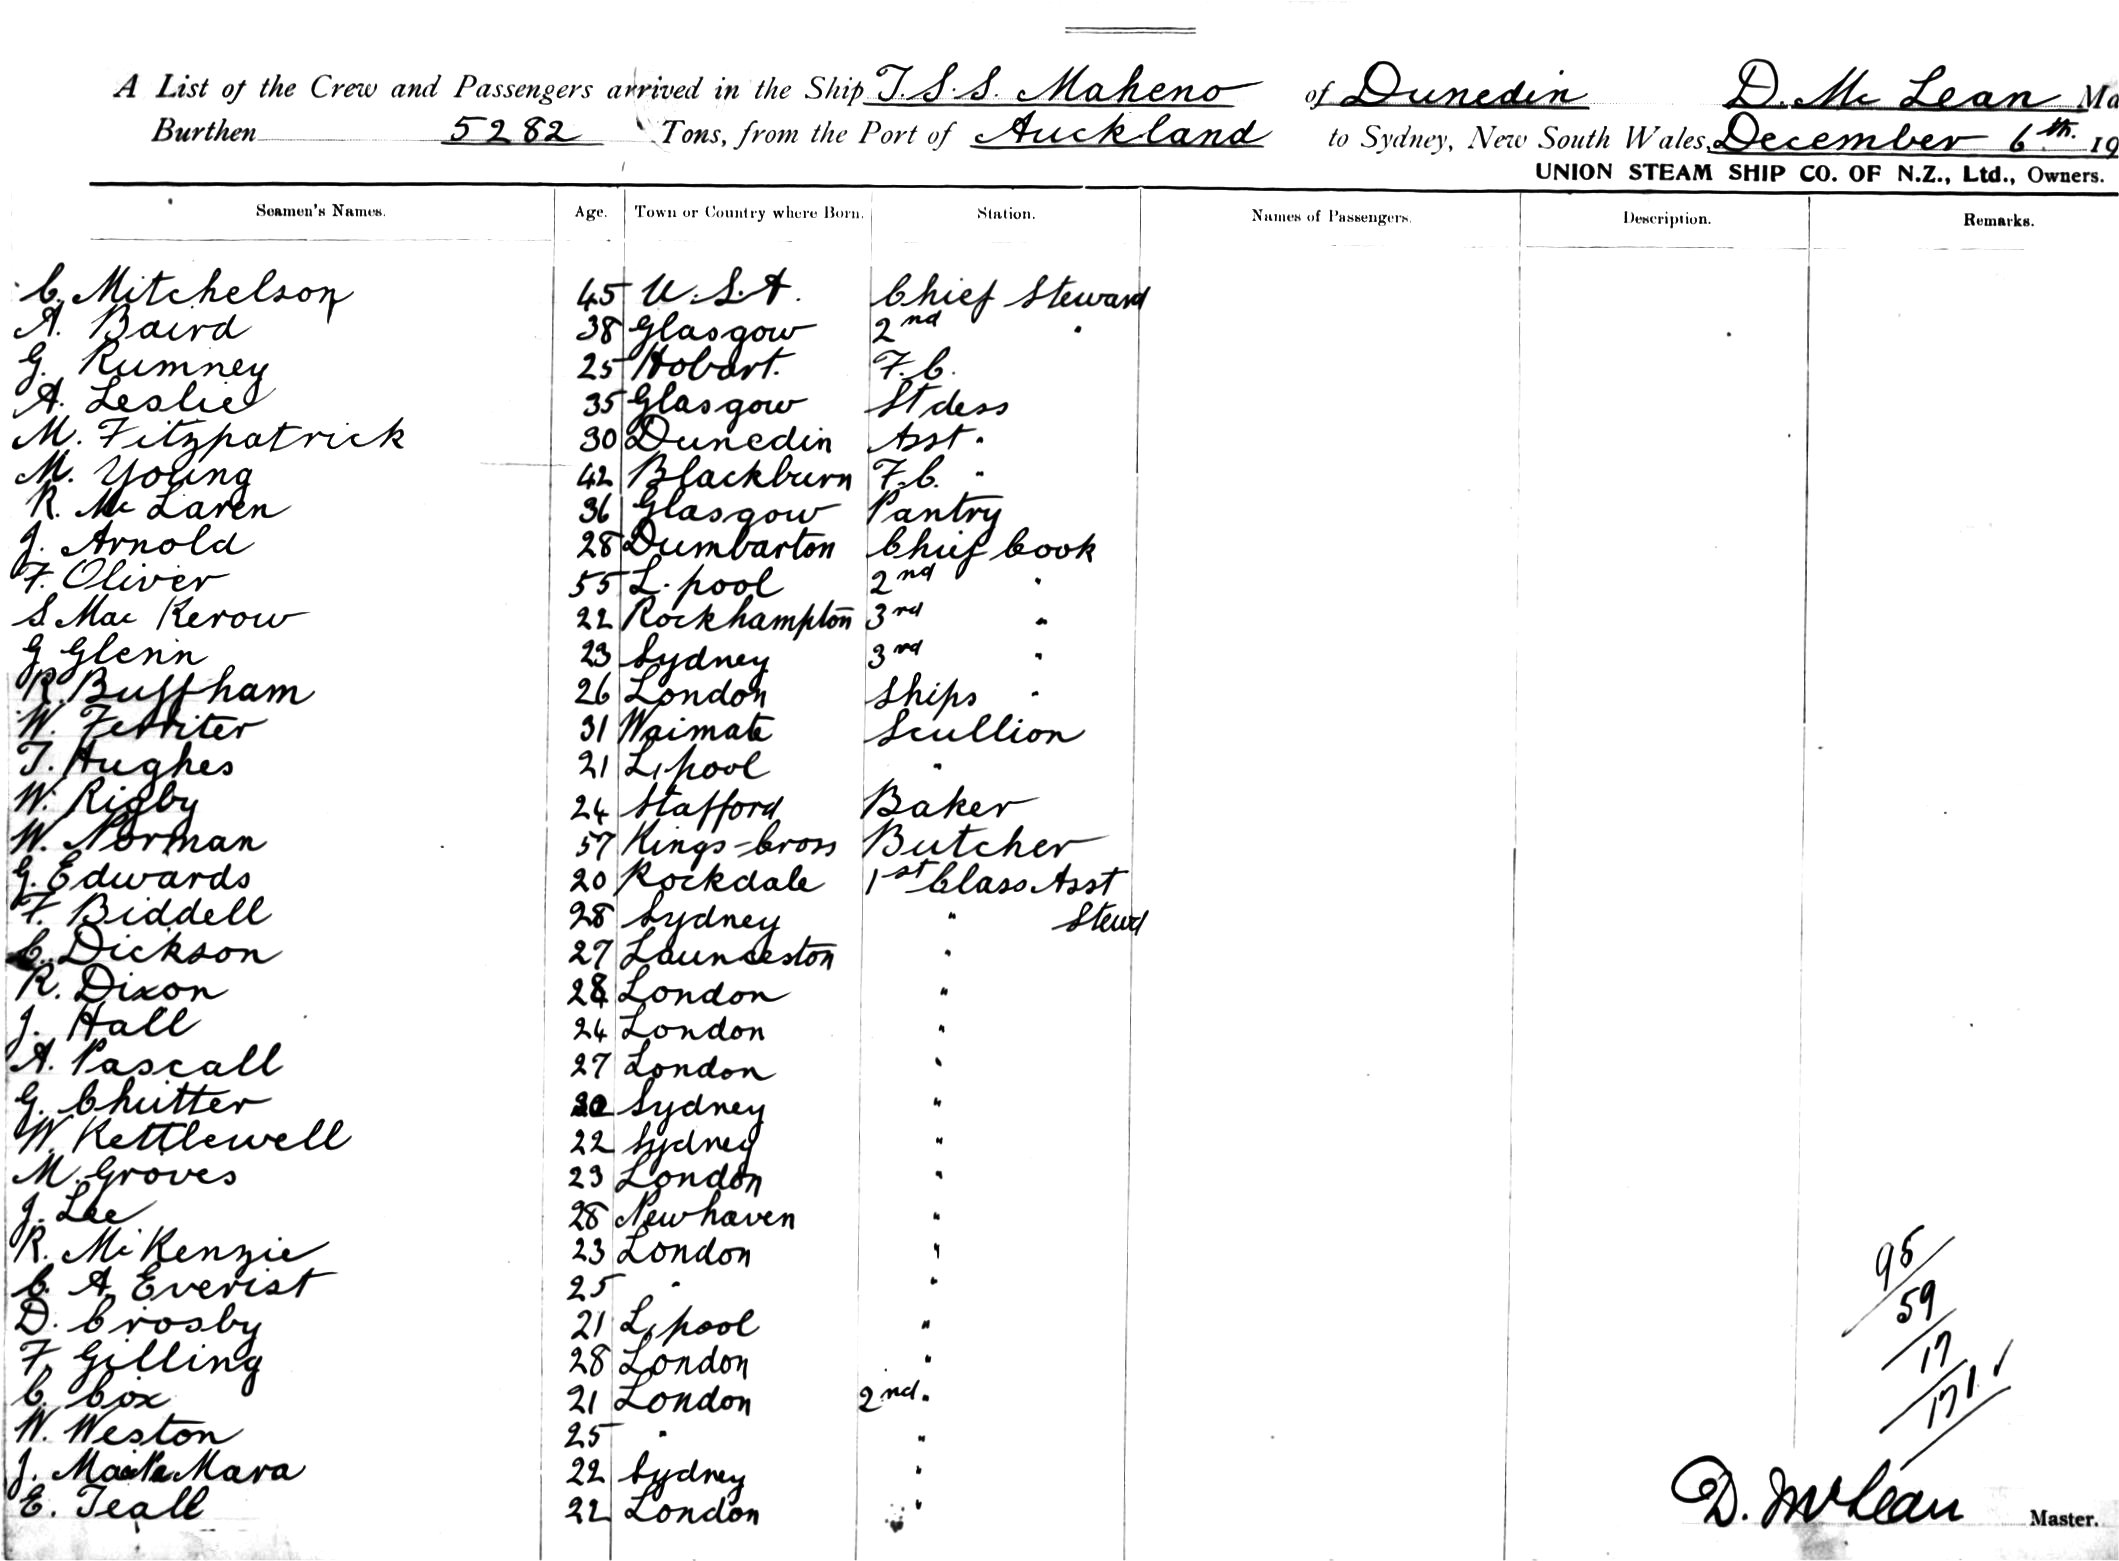 A List of the Crew and Passengers arrived in the Ship T.S.S. Maheno of Dunedin D. Mc Lean Ma
Burthen 5282 Tons, from the Port of Auckland to Sydney, New South Wales, December 6th. 19
UNION STEAM SHIP CO. OF N.Z., Ltd., Owners.
Seamen's Names. Age. Town or Country where Born. Station. Names of Passengers. Description. Remarks.
C. Mitchelson 45 U.S.A. Chief Steward
A. Baird 38 Glasgow 2nd "
G. Rumney 25 Hobart. F.C.
A. Leslie 35 Glasgow Stdess
M. Fitzpatrick 30 Dunedin Asst "
M. Young 42 Blackburn F.C. "
R. Mc Laren 36 Glasgow Pantry
J. Arnold 28 Dumbarton Chief Cook
F. Oliver 55 L.pool 2nd "
S Mac Kerow 22 Rockhampton 3rd "
G Glenn 23 Sydney 3rd "
R. Buffham 26 London Ships "
W. Ferriter 31 Waimate Scullion
T. Hughes 21 L.pool "
W. Rigby 24 Stafford Baker
W. Norman 57 Kings-Cross Butcher
G. Edwards 20 Rockdale 1st Class Asst
F. Biddell 28 Sydney " Stewd
C. Dickson 27 Launceston "
R. Dixon London "
J. Hall 24 London "
A. Pascall 27 London "
G. Chutter Sydney "
W. Kettlewell 22 Sydney "
M. Groves 23 London "
J. Lee 28 Newhaven "
R. McKenzie 23 London "
C. A Everist 25 " "
D. Crosby 21 L.pool "
F. Gilling 28 London "
C. Cox 21 London 2nd "
W. Weston 25 " "
J. Mara 22 Sydney "
E. Teall 22 London "
95
59
17
171
D. McLean Master.